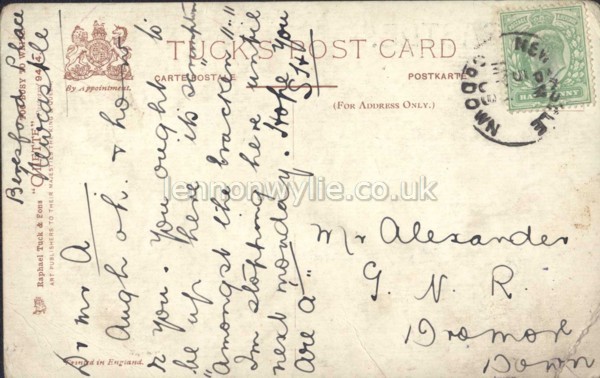 TUCK'S POST CARD
CARTE POSTALE
POSTKARTE
(FOR ADDRESS ONLY.)
By Appointment.
Raphael Tuck & Sons
ART PUBLISHERS TO THEIR MAJESTIES THE KING
Printed in England.
HALFPENNY
NEWCASTLE
CO. DOWN
Beresford Place
Newcastle
Dr Mr A
Augh oh. & how
r you. You ought to
be up here its scrumptious
"Amongst the bracken"."
I'm stopping here until
next monday. Hope you
are a"
Mr Alexander
G. N. R.
Dromore
Down
lennonwylie.co.uk